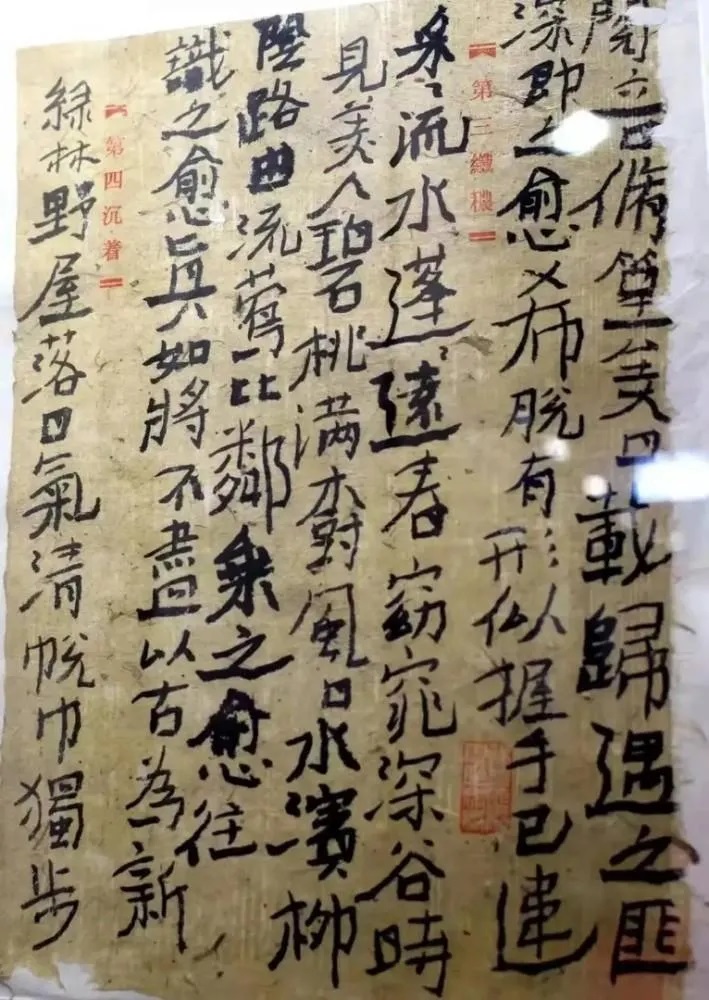 閱音脩篁美曰載歸遇之匪
深即之愈希脫有形似握手已違
第三纖穠
采〻流水蓬〻遠春窈窕深谷時
見美人碧桃满樹風日水濱柳
陰路曲流鶯比鄰乘之愈往
識之愈真如將不盡以古為新
第四沉着
綠林野屋落日氣清帨巾獨步